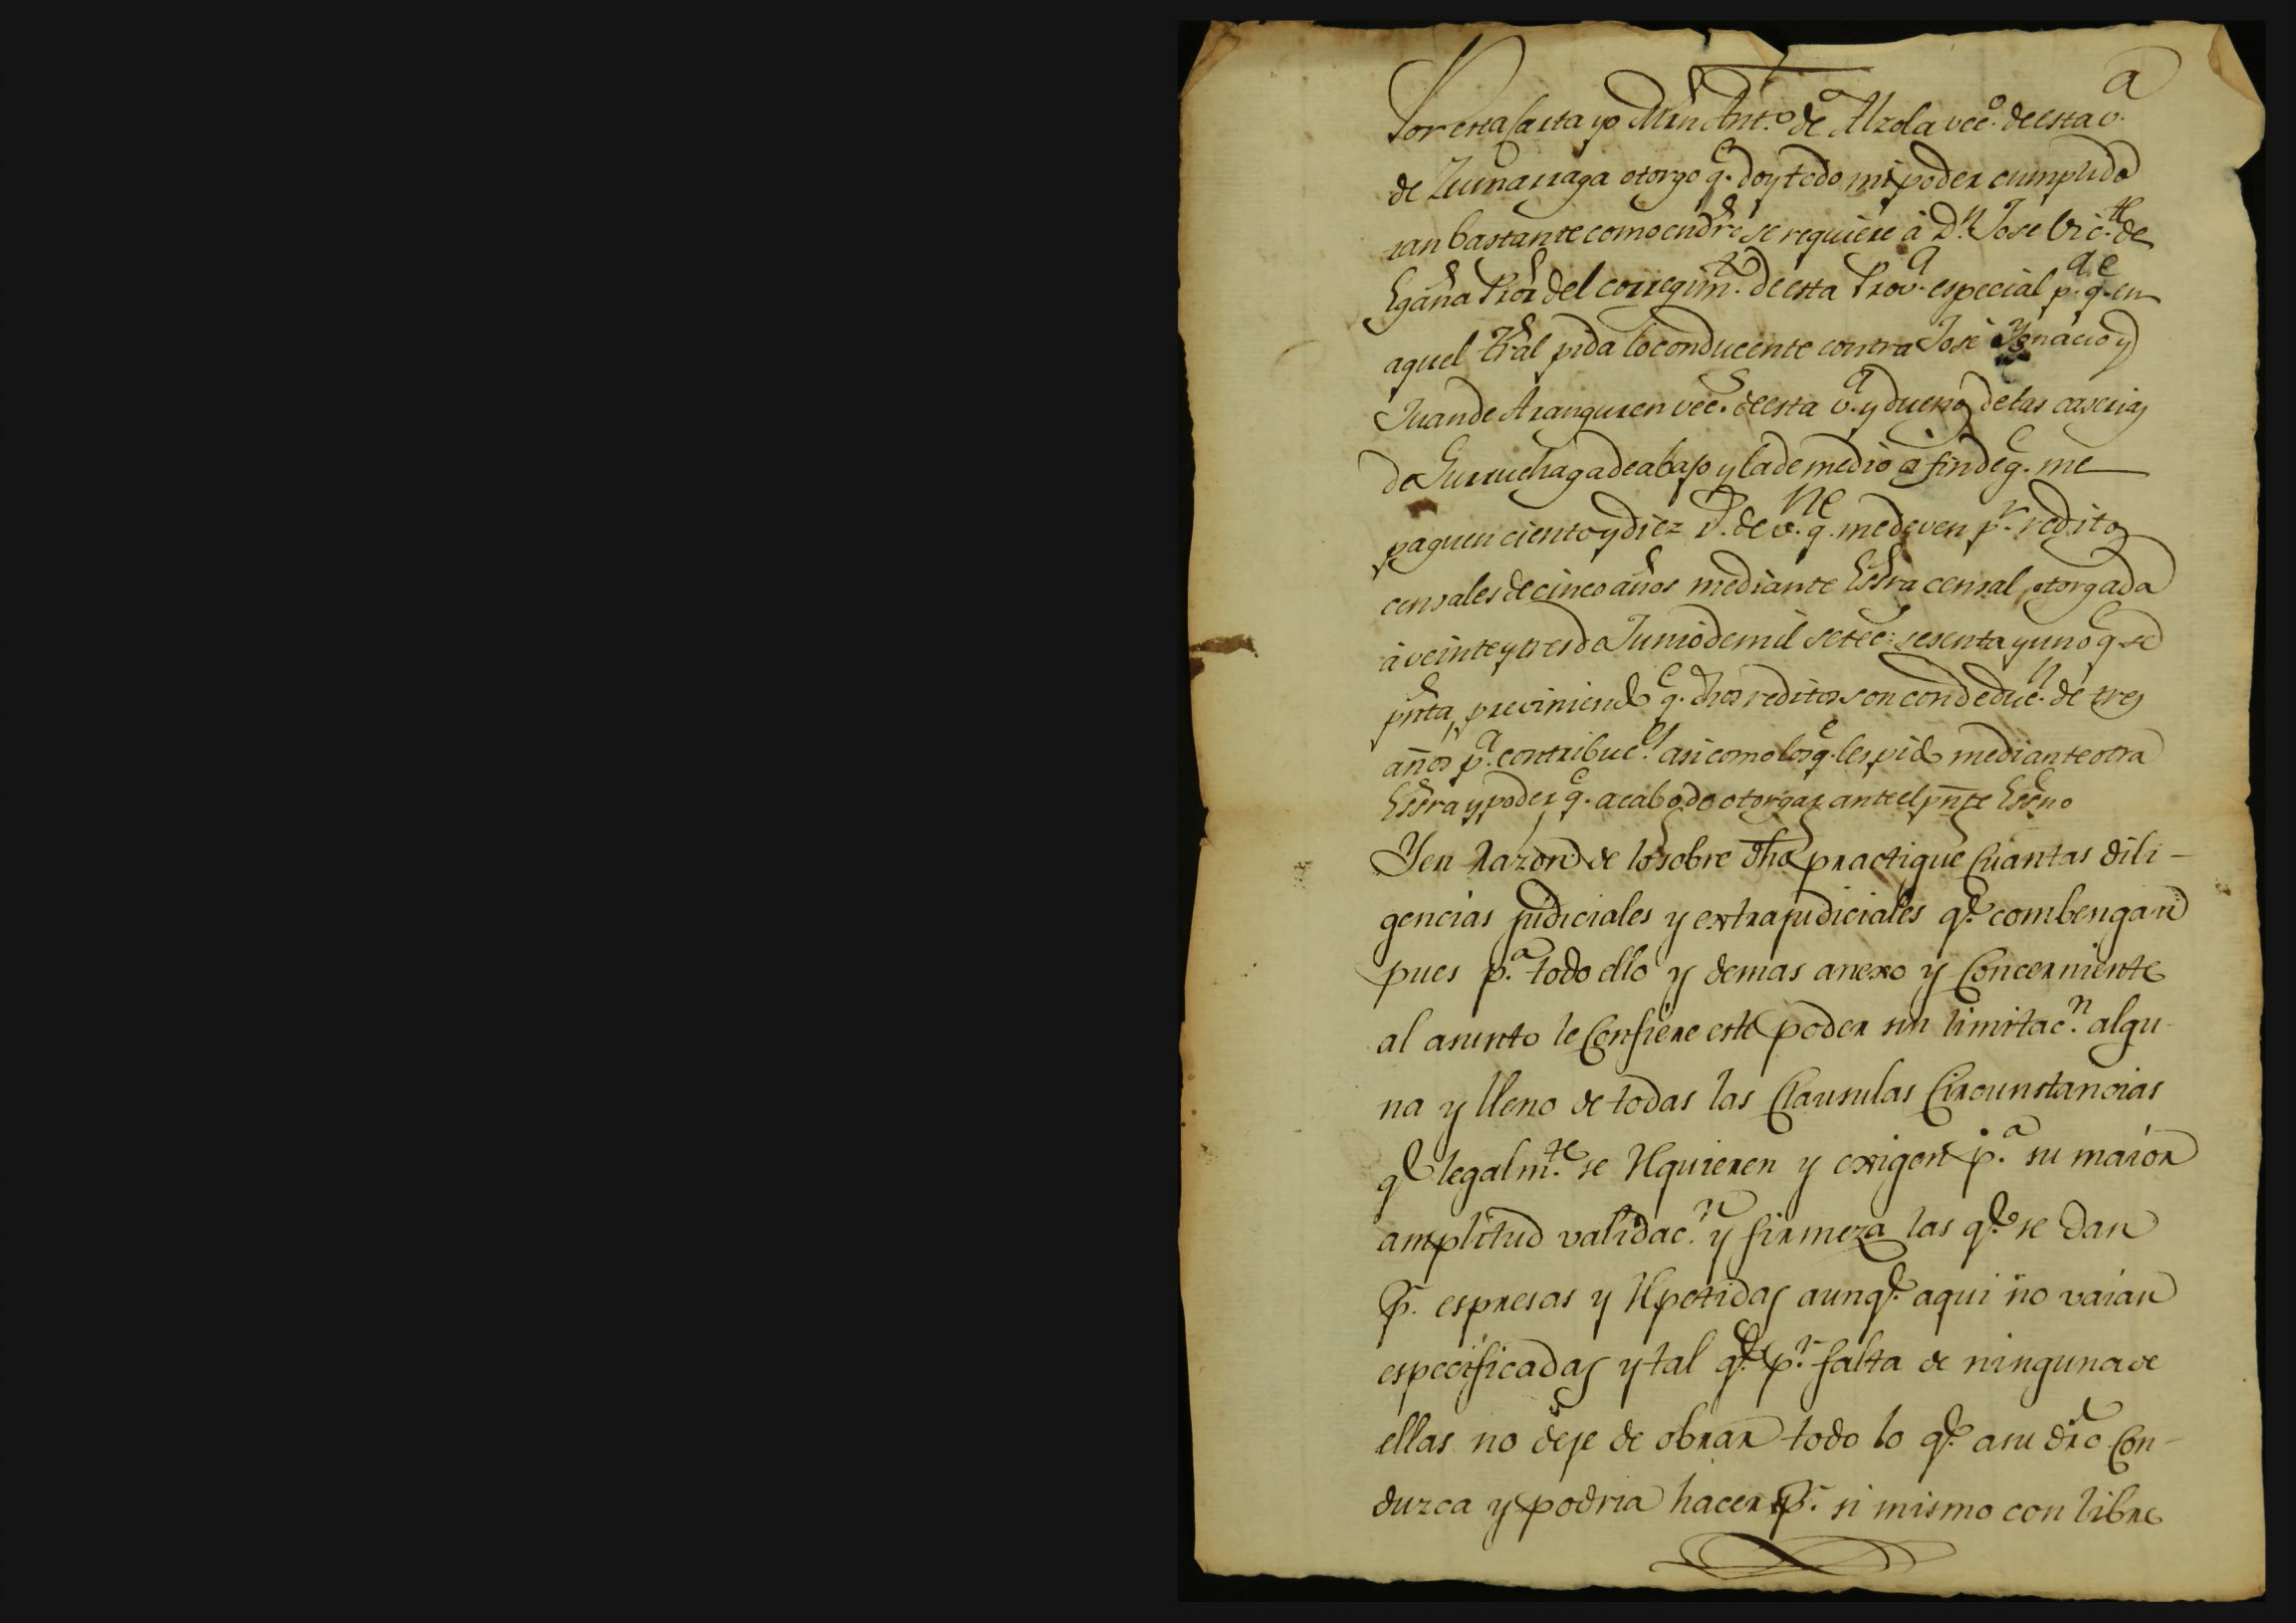 Por esta Carta yo Mrn Ant.º de Alzola vec.º de esta v.ª
de Zumarraga otorgo q.e doy todo mi poder cumplido
tan bastante como en dro se requiere à D.n Jose Vic.te de
Egaña Pror del corregim.to de esta Prov.a especial p.a q.e en
aquel Tral pida lo conducente contra Josè Ygnacio y
Juan de Aranguren vec.s de esta v.a y dueños de las caserias
de Gurruchaga de abajo y la de medio à fin de q.e me
paguen ciento y diez r.s de v.n q.e me deven p.r reditos
censales de cinco años mediante Essra censal otorgada
à veinte y tres de Junio de mil setec.s sesenta y uno q.e se
pnta, previniendo q.e dhos reditos son con deduc.n de tres
años p.a contribuc.n asi como los q.e les pido mediante otra
Essra y poder q.e acabo de otorgar ante el pnte Essno
Y en razon de lo sobre dho practique Cuantas dili-
gencias judiciales y extrajudiciales q.e combengan
pues p.a todo ello y demas anexo y Concerniente
al asunto le Confiere este poder sin limitac.n algu-
na y lleno de todas las Clausulas Circunstancias
q.e legalm.te se Requieren y exigen p.a su maior
amplitud validac.n y firmeza las q.e se dan
p.r espresas y Repetidas aunq.e aqui no vaian
especificadas y tal q.e p.r falta de ninguna de
ellas no deje de obrar todo lo q.e a su dro Con-
duzca y podria hacer p.r si mismo con libre